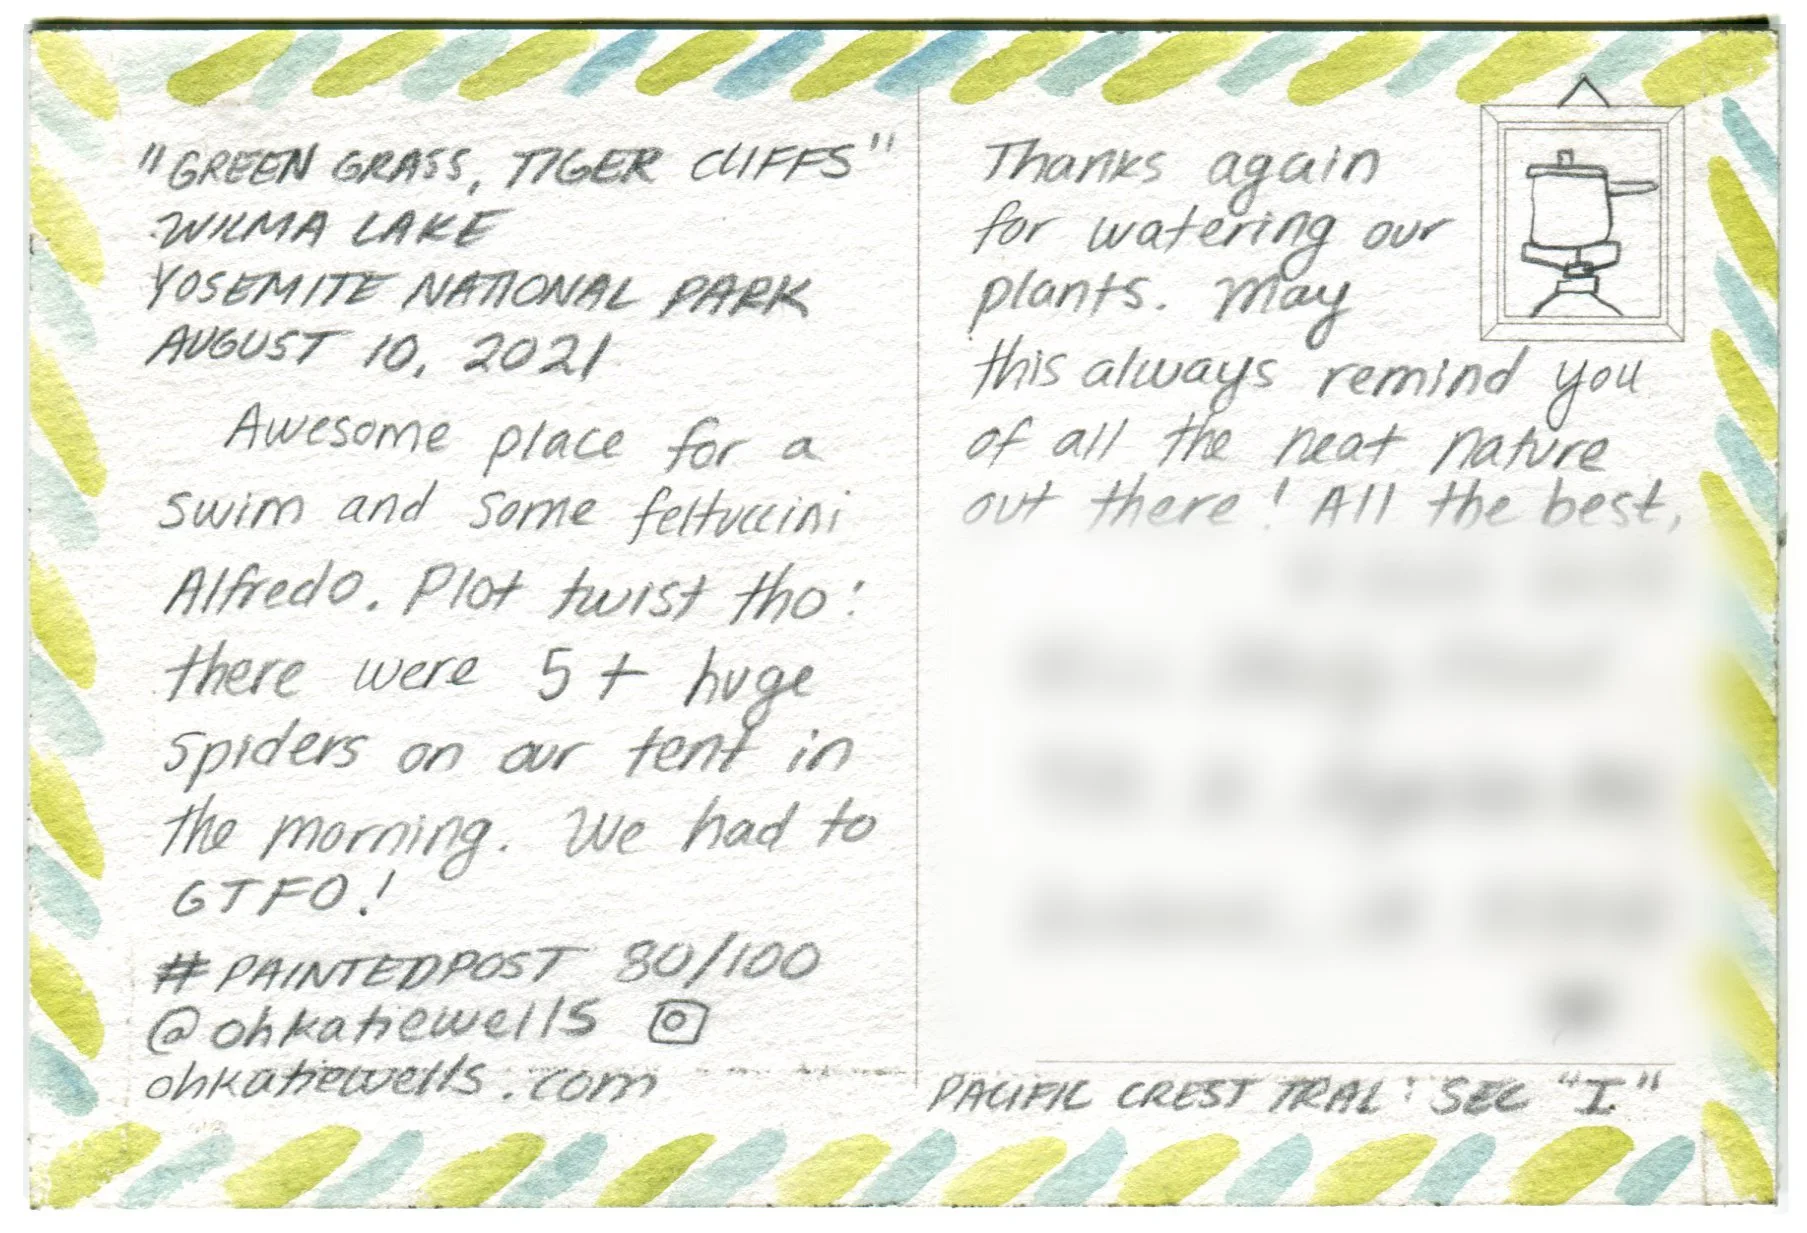 "GREEN GRASS, TIGER CLIFFS"
WILMA LAKE
YOSEMITE NATIONAL PARK
AUGUST 10, 2021
Awesome place for a
swim and some fettuccini
Alfredo. Plot twist tho:
there were 5+ huge
spiders on our tent in
the morning. We had to
GTFO!
#PAINTEDPOST 80/100
@ohkatiewells
ohkatiewells.com
Thanks again
for watering our
plants. May
this always remind you
of all the neat nature
out there! All the best,
PACIFIC CREST TRAIL: SEC "I"